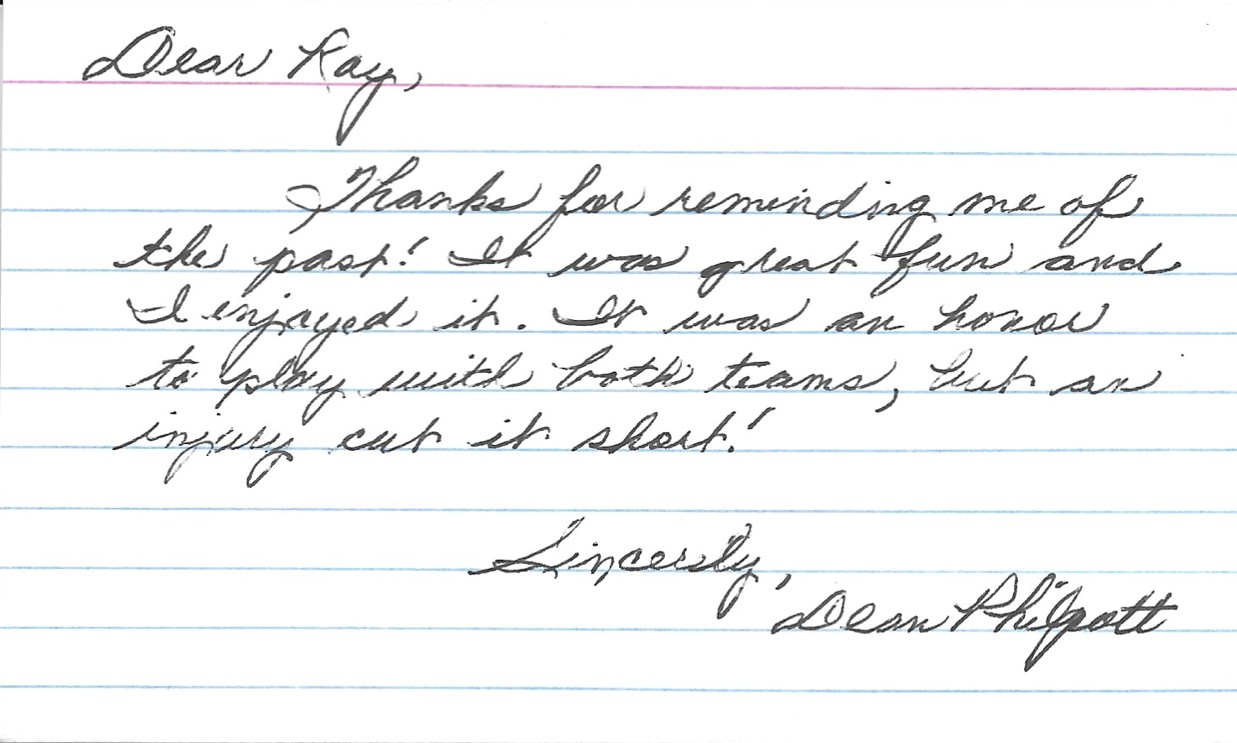 Dear Ray,
Thanks for reminding me of
the past! It was great fun and
I enjoyed it. It was an honor
to play with both teams, but an
injury cut it short!
Sincerely,
Dean Philpott